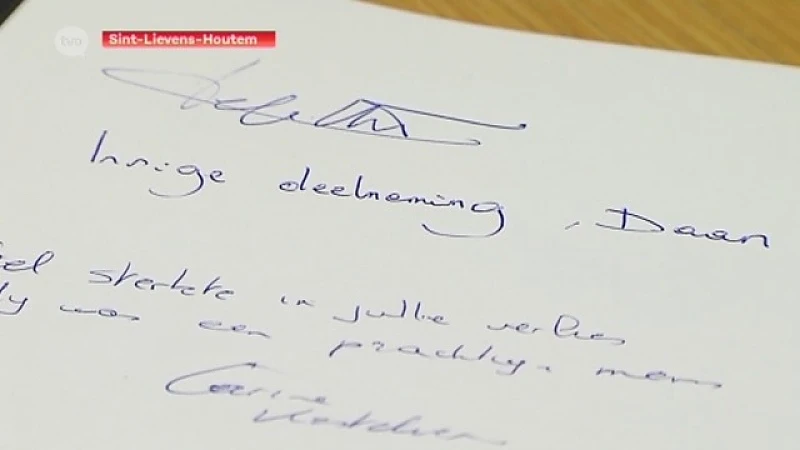 tvo
Sint-Lievens-Houtem
Innige deelneming, Daan
sterkte in jullie verlies
was een prachtig mens
Carine